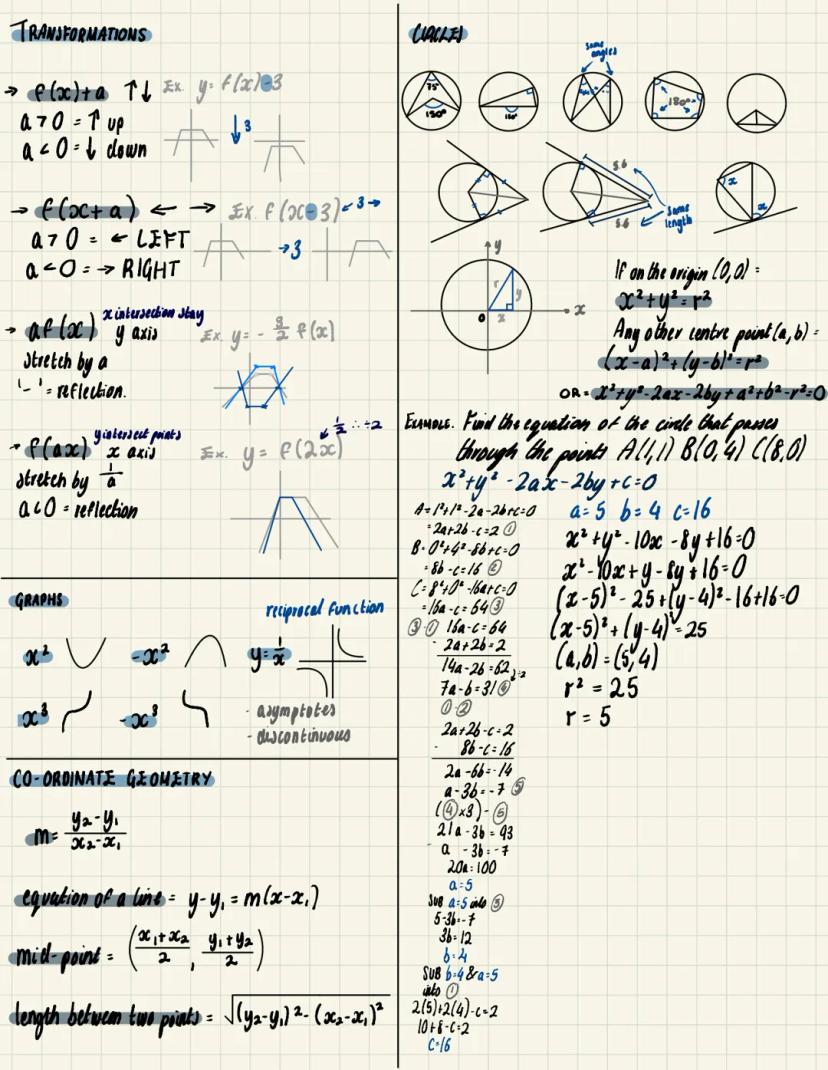 TRANSFORMATIONS
→ f(x)+a ↑↓ Ex. y= f(x)-3
a>0 = ↑ up
a<0 = ↓ down
↓3
→ f(x+a) ← → Ex. f(x-3) ← 3 →
a>0 = ← LEFT
a<0 = → RIGHT
→3
x intersection stay
→ af(x) y axis Ex. y= - 3/2 f(x)
stretch by a
'-' = reflection.
y intersect points
→ f(ax) x axis Ex. y = f(2x)
1/2 ∴ ÷2
stretch by 1/a
a<0 = reflection
GRAPHS
reciprocal function
x² -x² y= 1/x
x³ -x³
- asymptotes
- discontinuous
CO-ORDINATE GEOMETRY
m= y₂-y₁/x₂-x₁
equation of a line = y-y₁ = m(x-x₁)
mid-point = (x₁+x₂/2, y₁+y₂/2)
length between two points = √(y₂-y₁)²-(x₂-x₁)²
CIRCLES
same angles
75°
150°
180°
180°
5.6
5.6
same length
x
x
y
r
y
0
x
x
If on the origin (0,0) =
x²+y²=r²
Any other centre point (a,b) =
(x-a)²+(y-b)²=r²
OR = x²+y²-2ax-2by+a²+b²-r²=0
EXAMPLE. Find the equation of the circle that passes
through the points A(1,1) B(0,4) C(8,0)
x²+y² -2ax-2by+c=0
A=1²+1²-2a-2b+c=0
=2a+2b-c=2 ①
B=0²+4²-8b+c=0
=8b-c=16 ②
C=8²+0²-16a+c=0
=16a-c=64 ③
③-① 16a-c=64
- 2a+2b=2
14a-2b=62 ÷2
7a-b=31 ④
①-②
2a+2b-c=2
- 8b-c=16
2a-6b=-14
a-3b=-7 ⑤
(④x3)-⑤
21a-3b=93
- a -3b=-7
20a=100
a=5
SUB a=5 into ⑤
5-3b=-7
3b=12
b=4
SUB b=4 & a=5
into ①
2(5)+2(4)-c=2
10+8-c=2
c=16
a=5 b=4 c=16
x²+y²-10x-8y+16=0
x²-10x+y-8y+16=0
(x-5)²-25+(y-4)²-16+16=0
(x-5)²+(y-4)²=25
(a,b)=(5,4)
r² = 25
r = 5